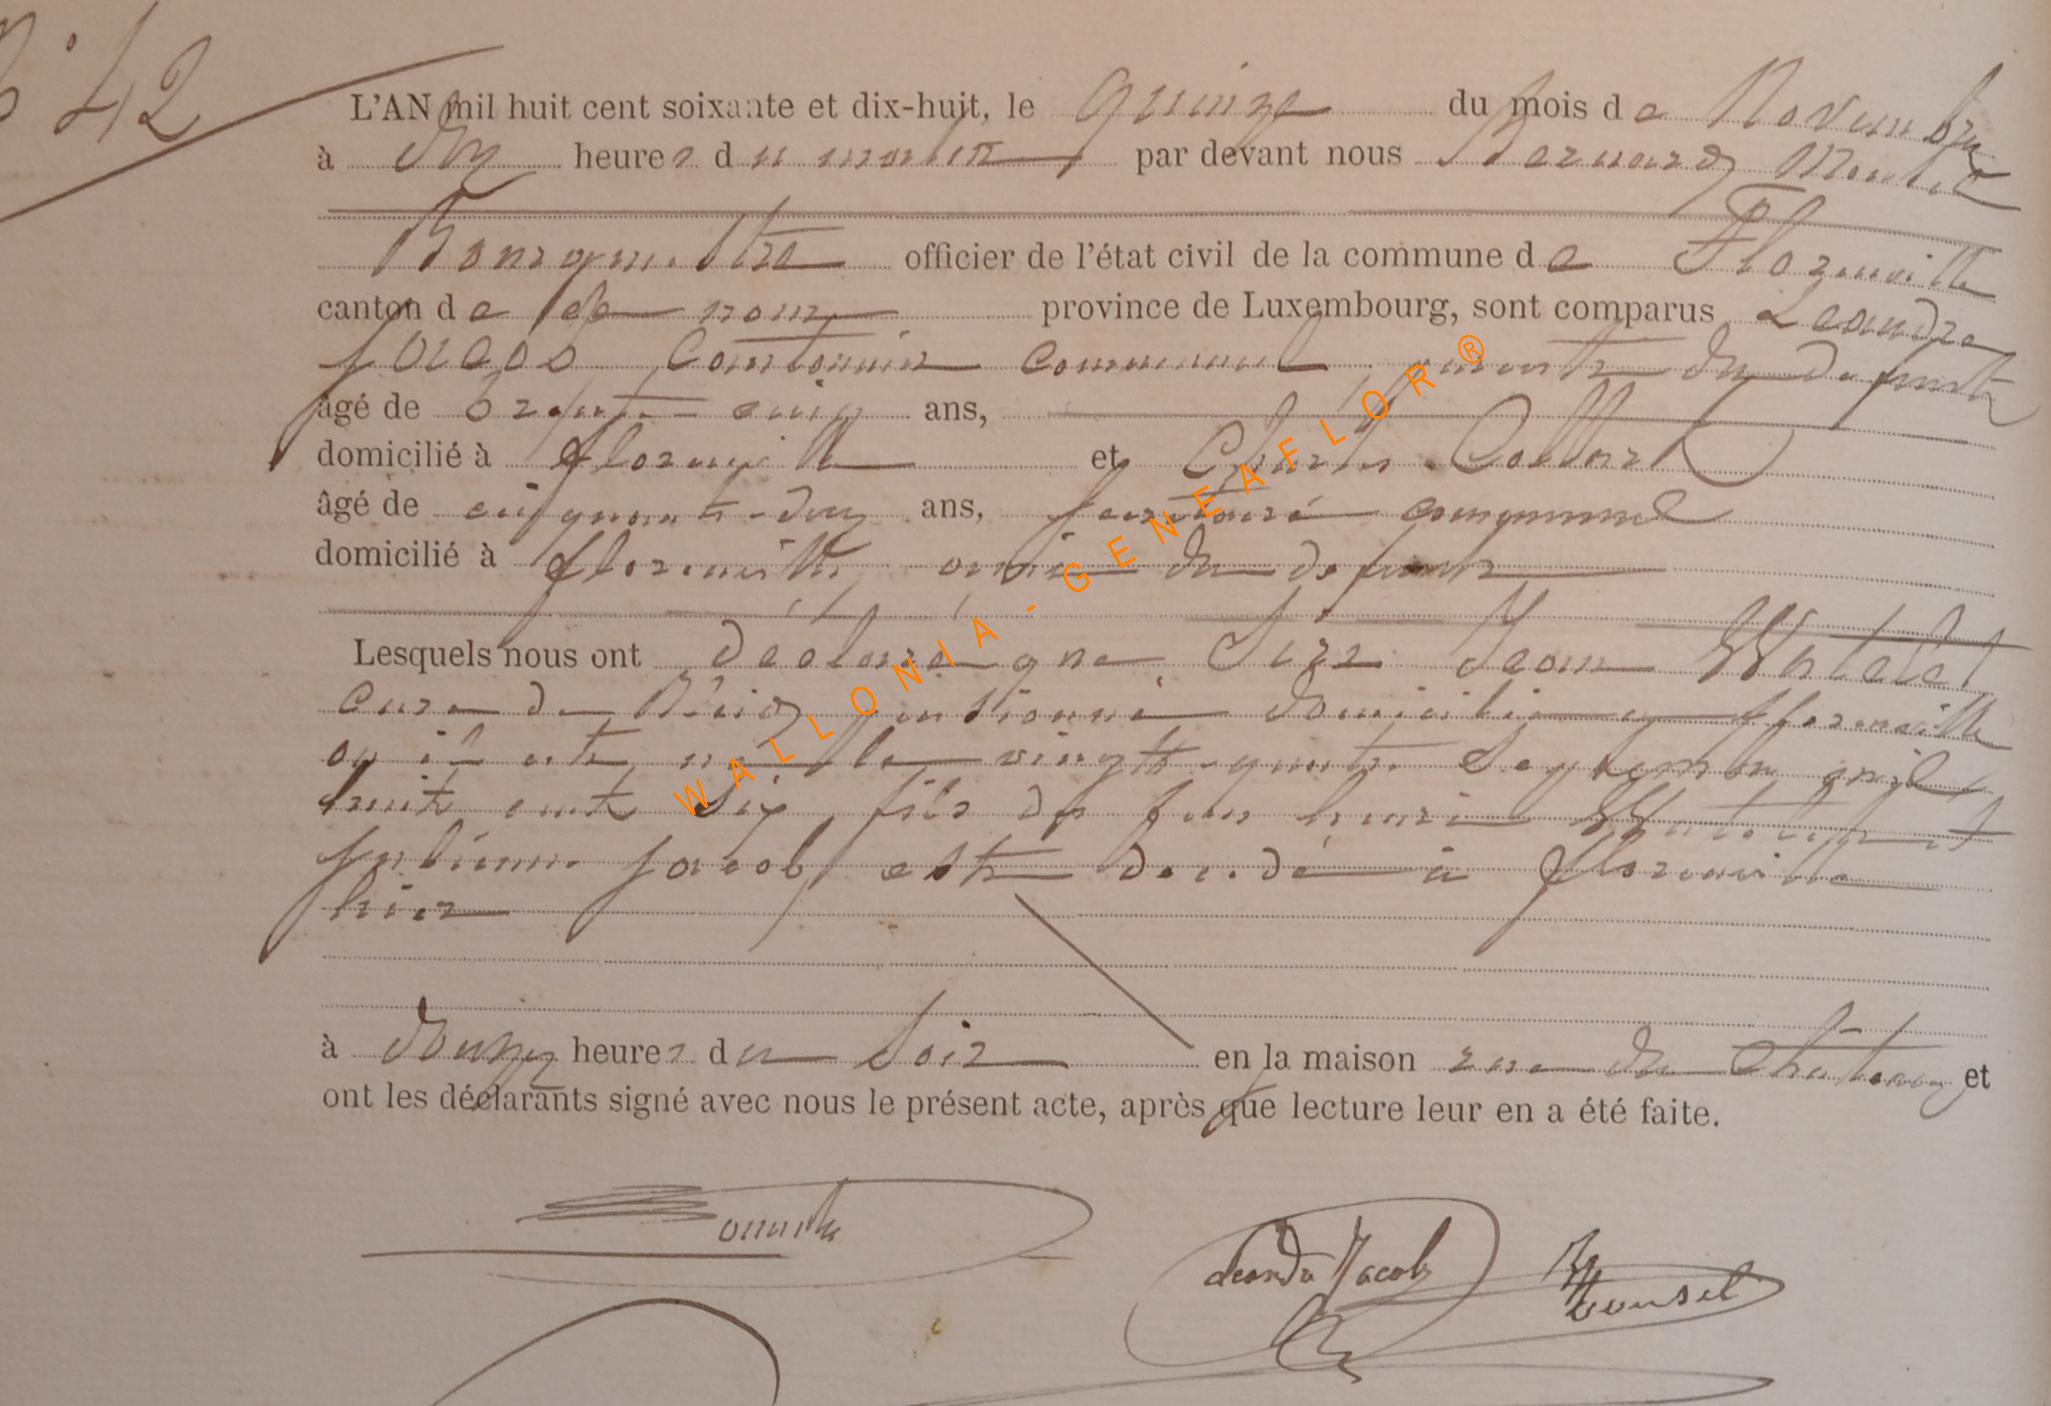 N° 42
L'AN mil huit cent soixante et dix-huit, le quinze du mois de Novembre
à dix heures du matin par devant nous Bernard
Bourgmestre officier de l'état civil de la commune de Florenville
canton de ce nom province de Luxembourg, sont comparus Léandre
Jacob Cantonnier communal du défunt
âgé de cinq ans,
domicilié à Florenville et Charles Collard
âgé de cinquante-deux ans, communal
domicilié à Florenville ami du défunt
Lesquels nous ont déclaré que Sire Jean Watelet
curé de pensionné domicilié à Florenville
où il est né le vingt-quatre Septembre mil
huit cent six fils de feu henri Watelet et
Jacob est décédé à Florenville
hier
à douze heures du Soir en la maison rue du Château et
ont les déclarants signé avec nous le présent acte, après que lecture leur en a été faite.
Léandre Jacob
WALLONIA-GENEAFLOR®